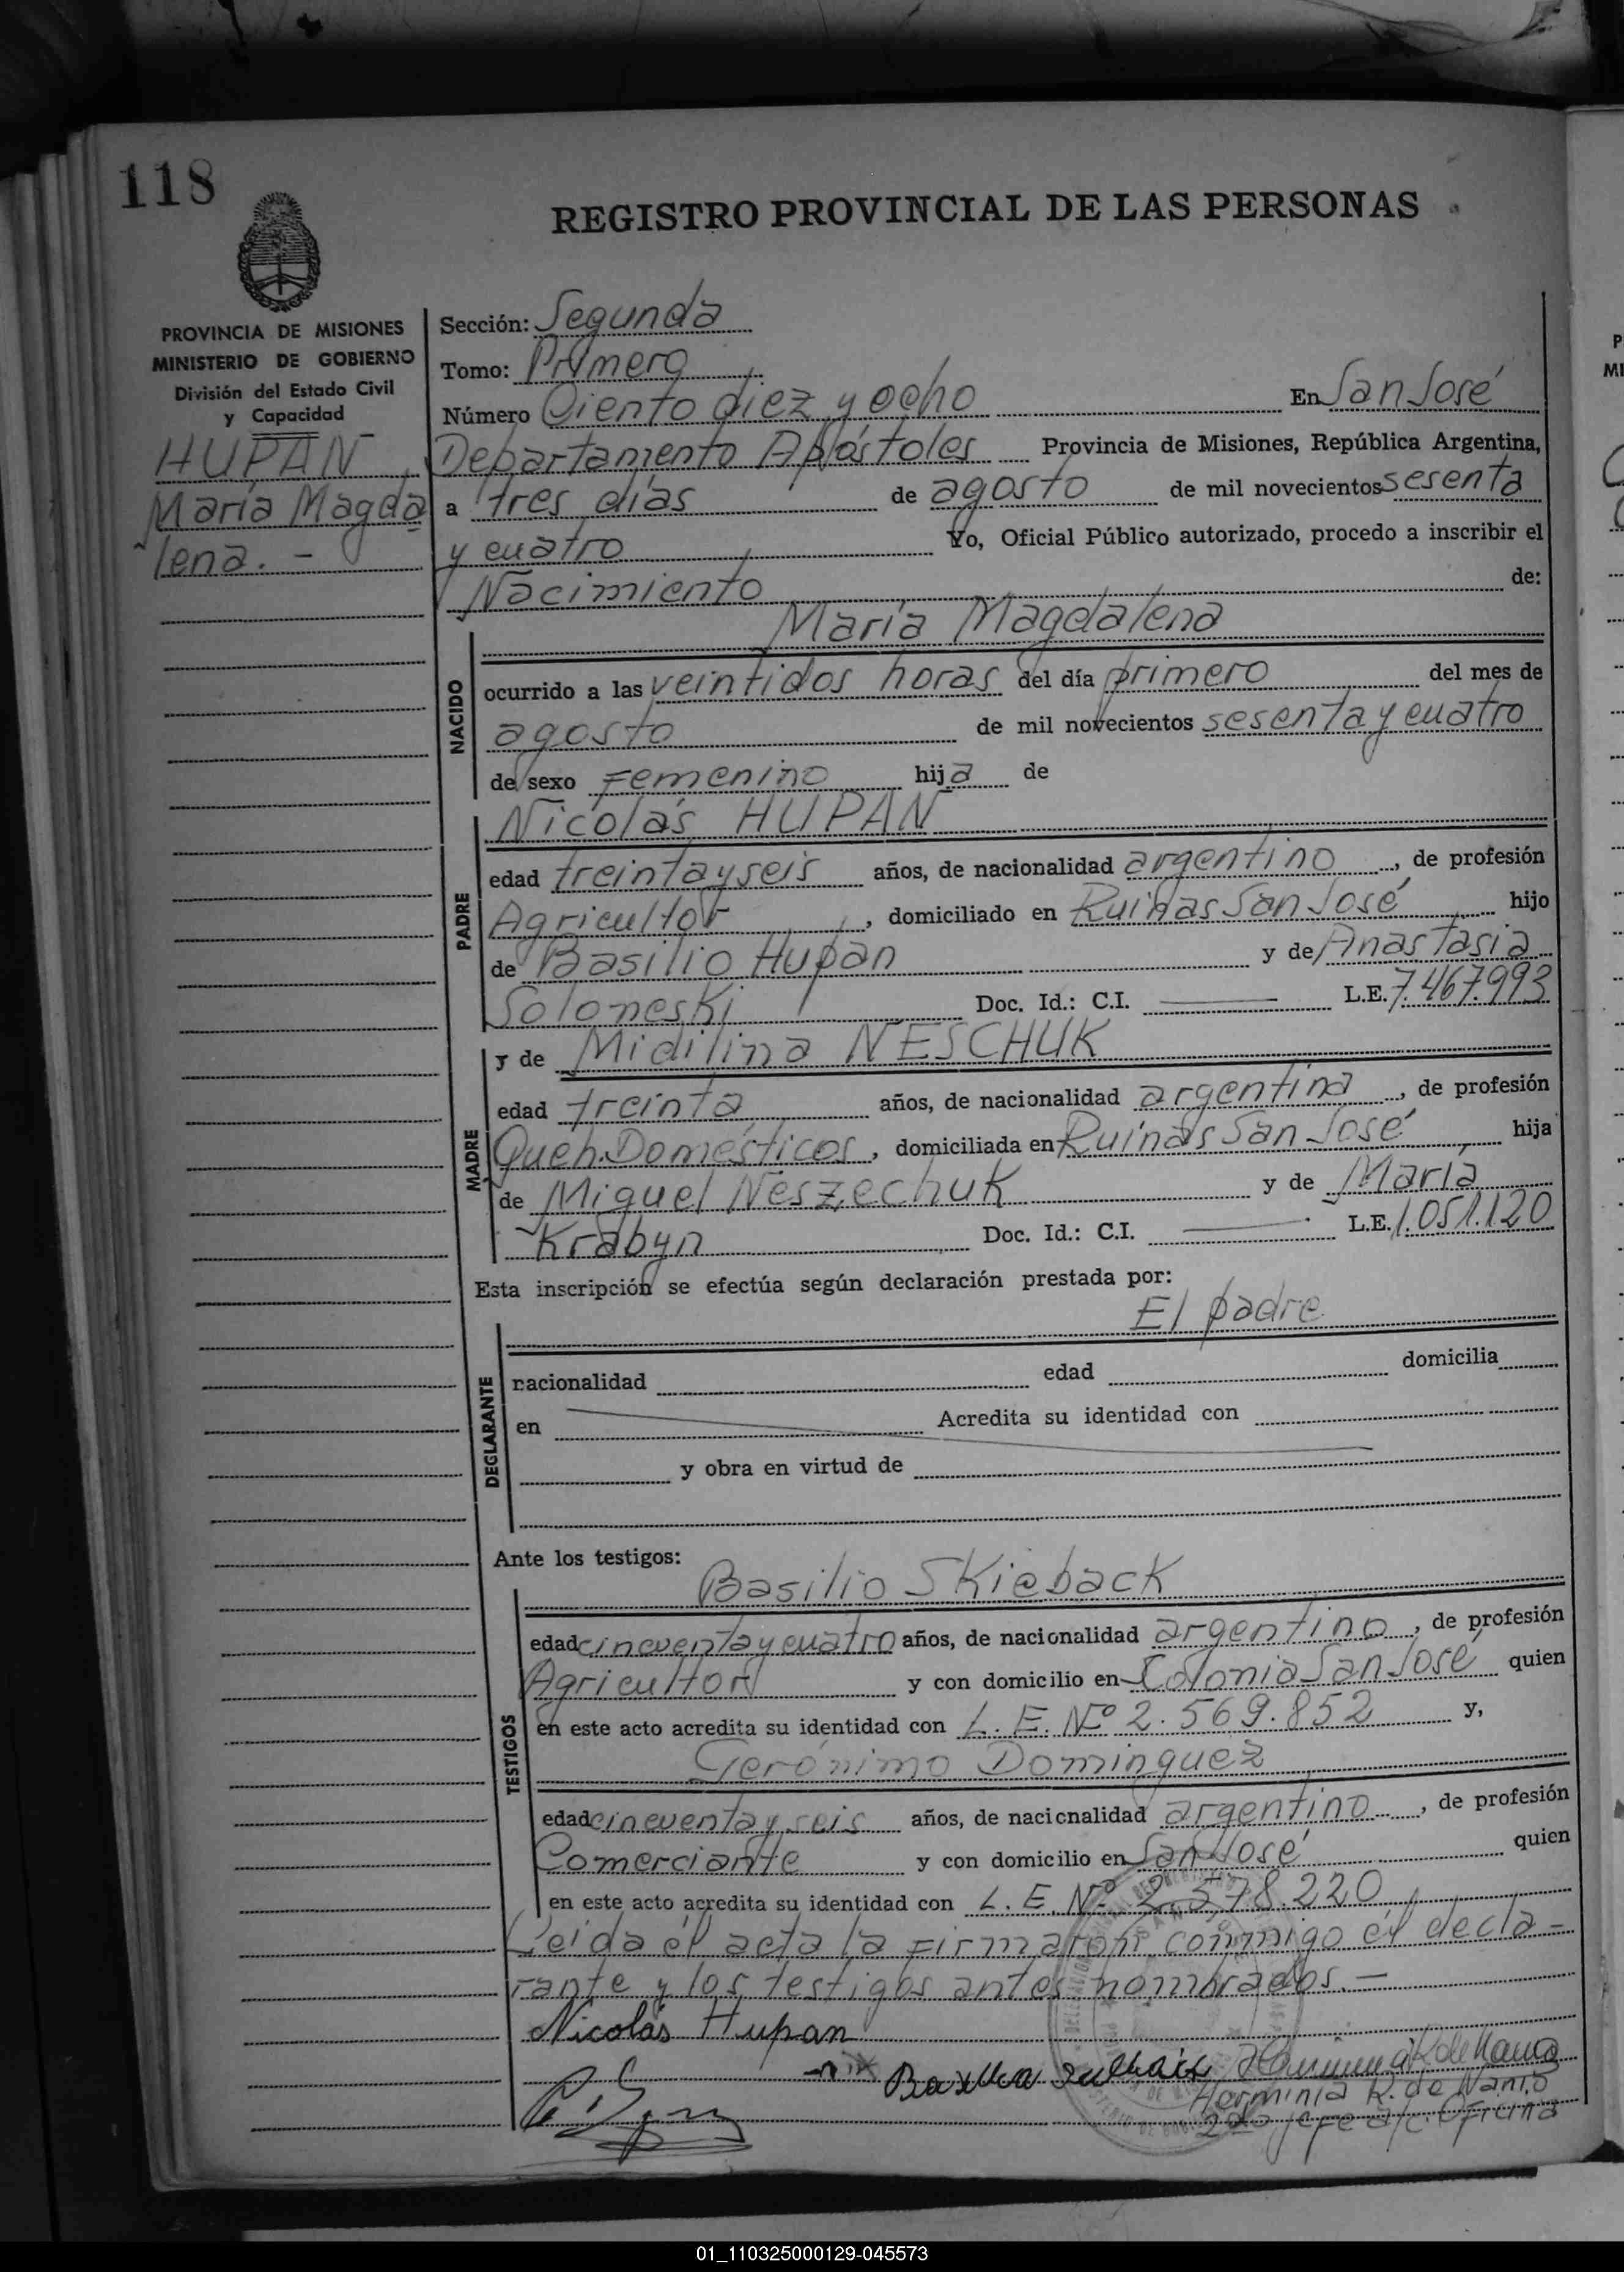 118
REGISTRO PROVINCIAL DE LAS PERSONAS
PROVINCIA DE MISIONES
MINISTERIO DE GOBIERNO
División del Estado Civil
y Capacidad
HUPAN
María Magda
lena. -
Sección: Segunda
Tomo: Primero
Número Ciento diez y ocho En San José
Departamento Apóstoles Provincia de Misiones, República Argentina,
a tres días de agosto de mil novecientos sesenta
y cuatro Yo, Oficial Público autorizado, procedo a inscribir el
Nacimiento de:
María Magdalena
NACIDO
ocurrido a las veintidos horas del día primero del mes de
agosto de mil novecientos sesenta y cuatro
de sexo Femenino hija de
Nicolás HUPAN
PADRE
edad treinta y seis años, de nacionalidad argentino, de profesión
Agricultor, domiciliado en Ruinas San José hijo
de Basilio Hupan y de Anastasia
Soloneski Doc. Id.: C.I. L.E. 7.467.993
y de Midilina NESCHUK
MADRE
edad treinta años, de nacionalidad argentina, de profesión
Queh. Domésticos, domiciliada en Ruinas San José hija
de Miguel Neszechuk y de María
Krabyn Doc. Id.: C.I. L.E. 1.051.120
Esta inscripción se efectúa según declaración prestada por:
El padre
DECLARANTE
nacionalidad edad domicilia
en Acredita su identidad con
y obra en virtud de
Ante los testigos:
Basilio Skieback
TESTIGOS
edad cincuenta y cuatro años, de nacionalidad argentino, de profesión
Agricultor y con domicilio en Colonia San José quien
en este acto acredita su identidad con L. E. Nº 2.569.852 y,
Gerónimo Dominguez
edad cincuenta y seis años, de nacionalidad argentino, de profesión
Comerciante y con domicilio en San José quien
en este acto acredita su identidad con L. E. Nº 2.578.220
Leida él acta la Firmaron conmigo él decla-
rante y los testigos antes nombrados.-
Nicolás Hupan
Herminia R. de Nanio
2do Jefe a/c. Oficina
01_110325000129-045573